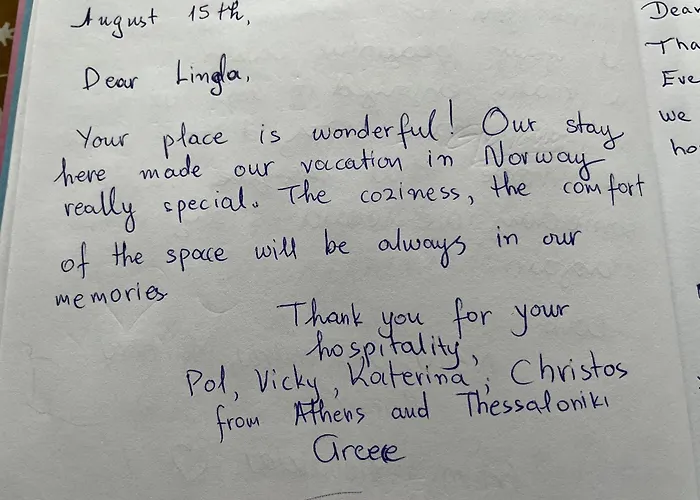 August 15th,
Dear Lingla,
Your place is wonderful! Our stay
here made our vacation in Norway
really special. The coziness, the comfort
of the space will be always in our
memories
Thank you for your
hospitality,
Pol, Vicky, Katerina, Christos
from Athens and Thessaloniki
Greece
Dear
Tha
Eve
we
ho